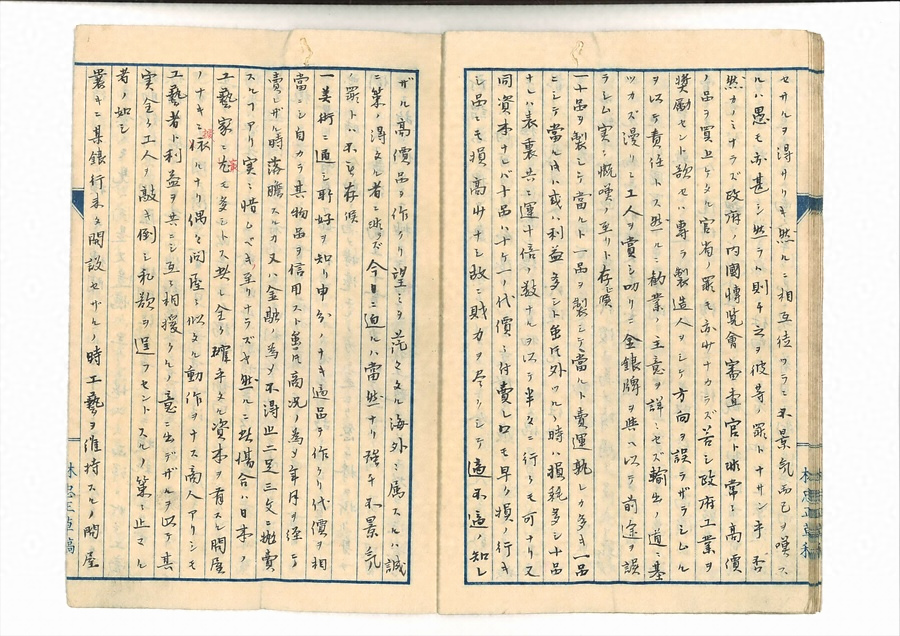 セサルヲ得サリキ然ルニ相互位ヲラニ不景気而已ヲ嘆ス
ルハ愚モ亦甚シ然ラハ則チ之ヲ彼等ノ罪トナサン乎否
然カノミナラズ政府ノ内國博覧會審査官ト非常ニ高價
ノ品ヲ買上ケタル官省ノ罪モ亦少ナカラズ苦シ政府工業ヲ
奨励セント欲セハ専ラ製造人ヲシテ方向ヲ誤ラザラシムル
ヲ以テ責任トス然ルニ勧業ノ主意ヲ詳ニセズ輸出ノ道ニ基
ツカズ漫リニ工人ヲ賞シ叨リニ金銀牌ヲ與ヘ以テ前途ヲ誤
ラシム実ニ慨嘆ノ至リト存候
一十品ヲ製シテ當ルト一品ヲ製シテ當ルト賣運熟レカ多キ一品
ニシテ當ルトキハ或ハ利益多シト虽𪜈外ツルノ時ハ損耗多シ十品
ナレハ表裏共ニ運十倍ノ数ナルヲ以テ半々ニ行クモ可ナリ又
同資本ナレバ十品ハ十ケ一ノ代價ニ付賣レ口モ早ク損ノ行キ
シ品ニモ損高少ナシ故ニ財力ヲ尽クシテ適不適ノ知レ
ザル高價品ヲ作クリ望ミヲ茫々タル海外ニ属スルハ誠
ニ策ノ得タル者ニ非ラズ今日ニ迫ルハ當然ナリ強チ不景気
ノ罪トハ不と存候
一美術ニ通シ斬好ヲ知リ申分ノナキ適品ヲ作クリ代價ヲ相
當ニシ自カラ其物品ヲ信用スト虽𪜈商况ノ為メ年月ヲ経テ
賣レザル時落膽スルカ又ハ金融ノ為メ不得止二足三文ニ抛賣
スルコアリ実ニ惜ムベキノ至リナラズヤ然ルニ此場合ハ日本ノ
工藝家ニ尤モ多シトス此レ全ク確乎タル資本ヲ有スル問屋
ノナキニ依ルナリ偶々問屋ニ似タル動作ヲナス商人アリシモ
工藝者ト利益ヲ共ニシ互ニ相援クルノ意ニ出デザルヲ以テ其
実全ク工人ヲ敲キ倒シ私欲ヲ逞フセントスルノ策ニ止マル
者ノ如シ
曩キニ某銀行未タ開設セザルノ時工藝ヲ維持スルノ問屋
林忠正草稿